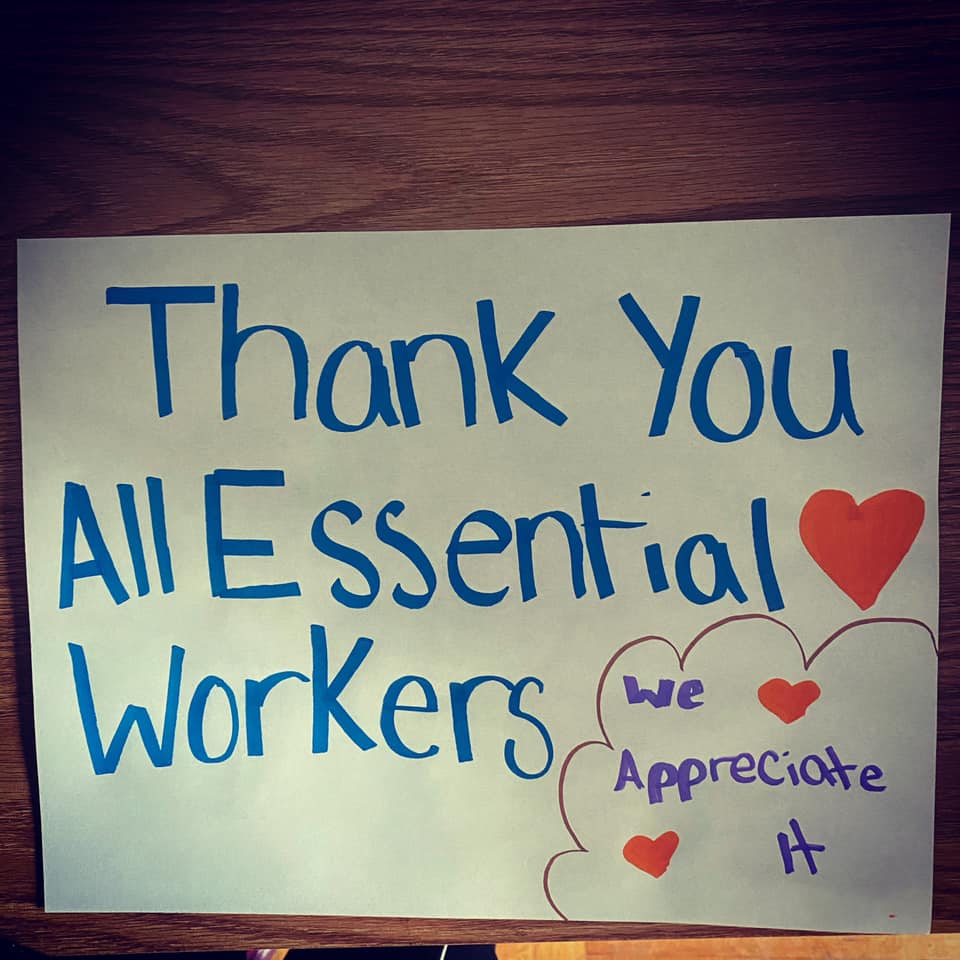 Thank You
All Essential
Workers
We
Appreciate
It